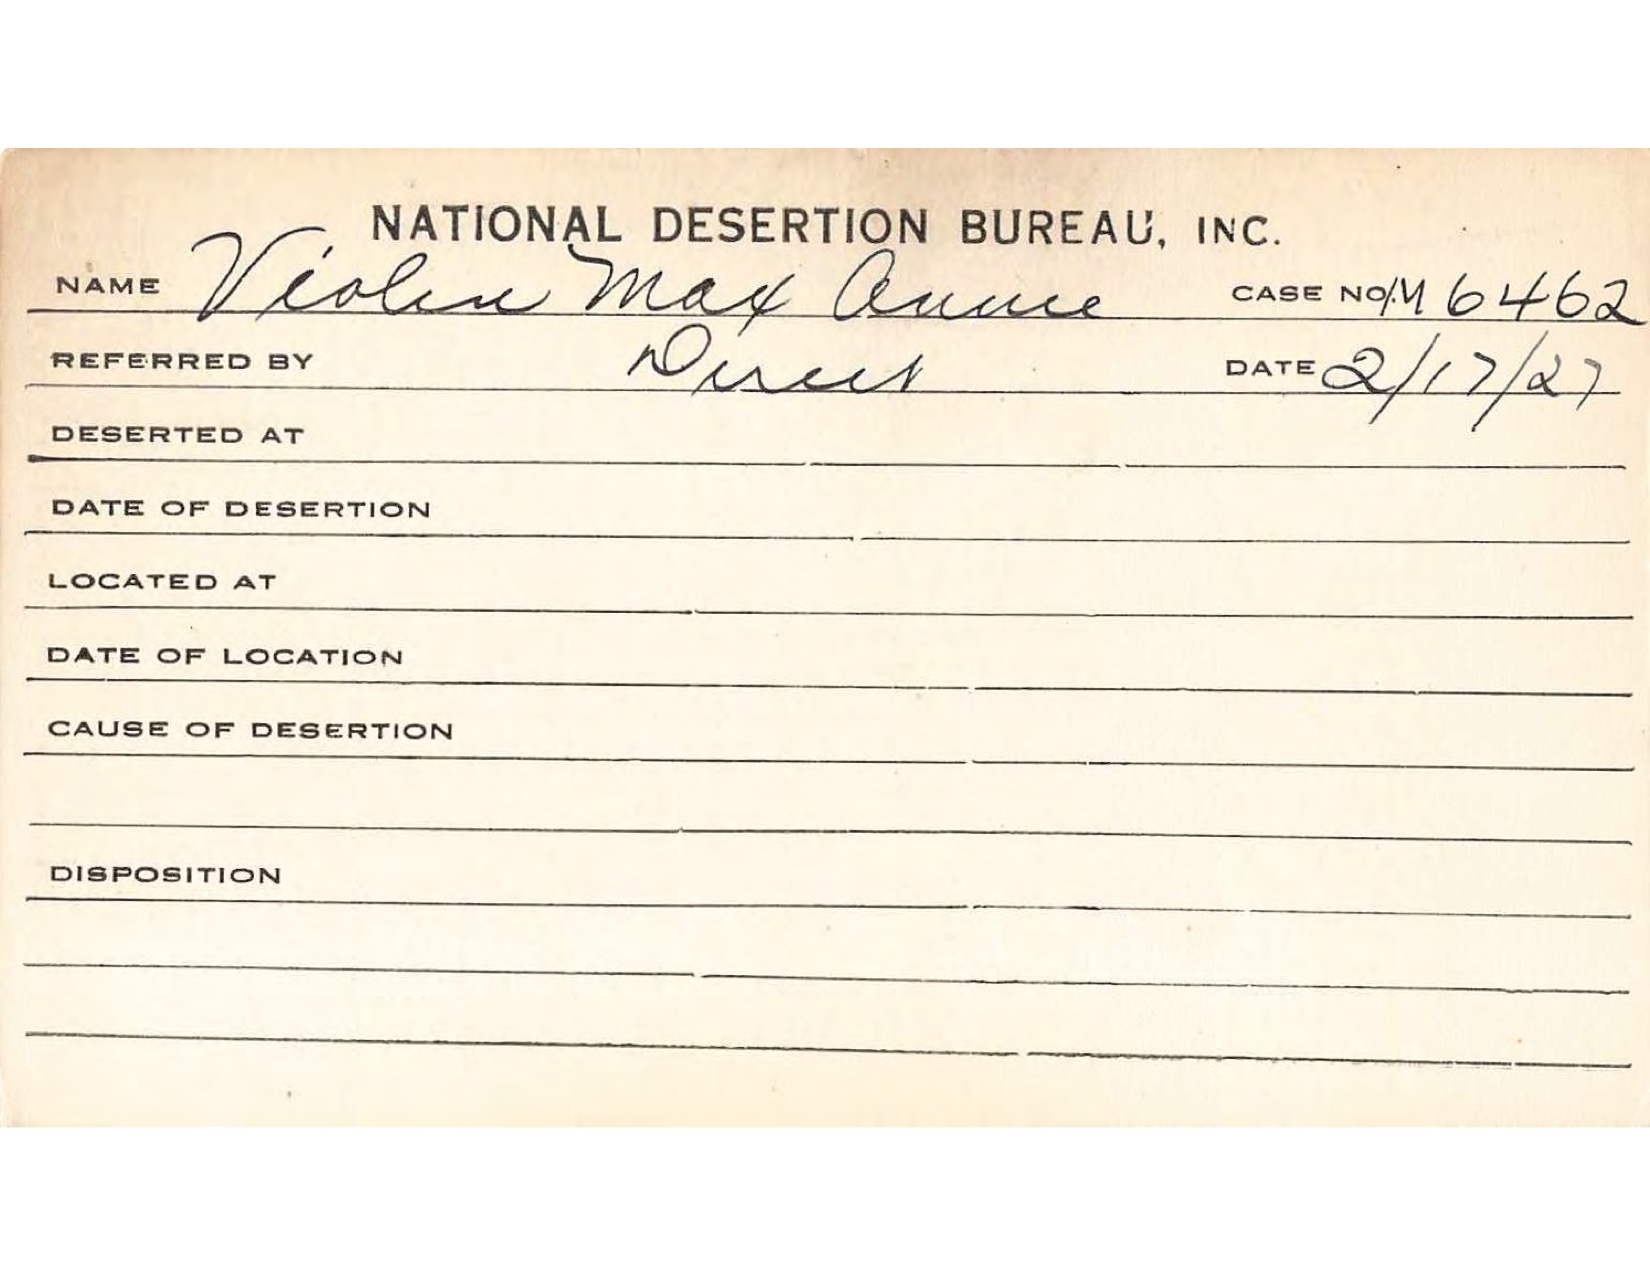 NATIONAL DESERTION BUREAU, INC.
NAME Violin Max Annie CASE NO. M 6462
REFERRED BY Direct DATE 2/17/27
DESERTED AT
DATE OF DESERTION
LOCATED AT
DATE OF LOCATION
CAUSE OF DESERTION
DISPOSITION